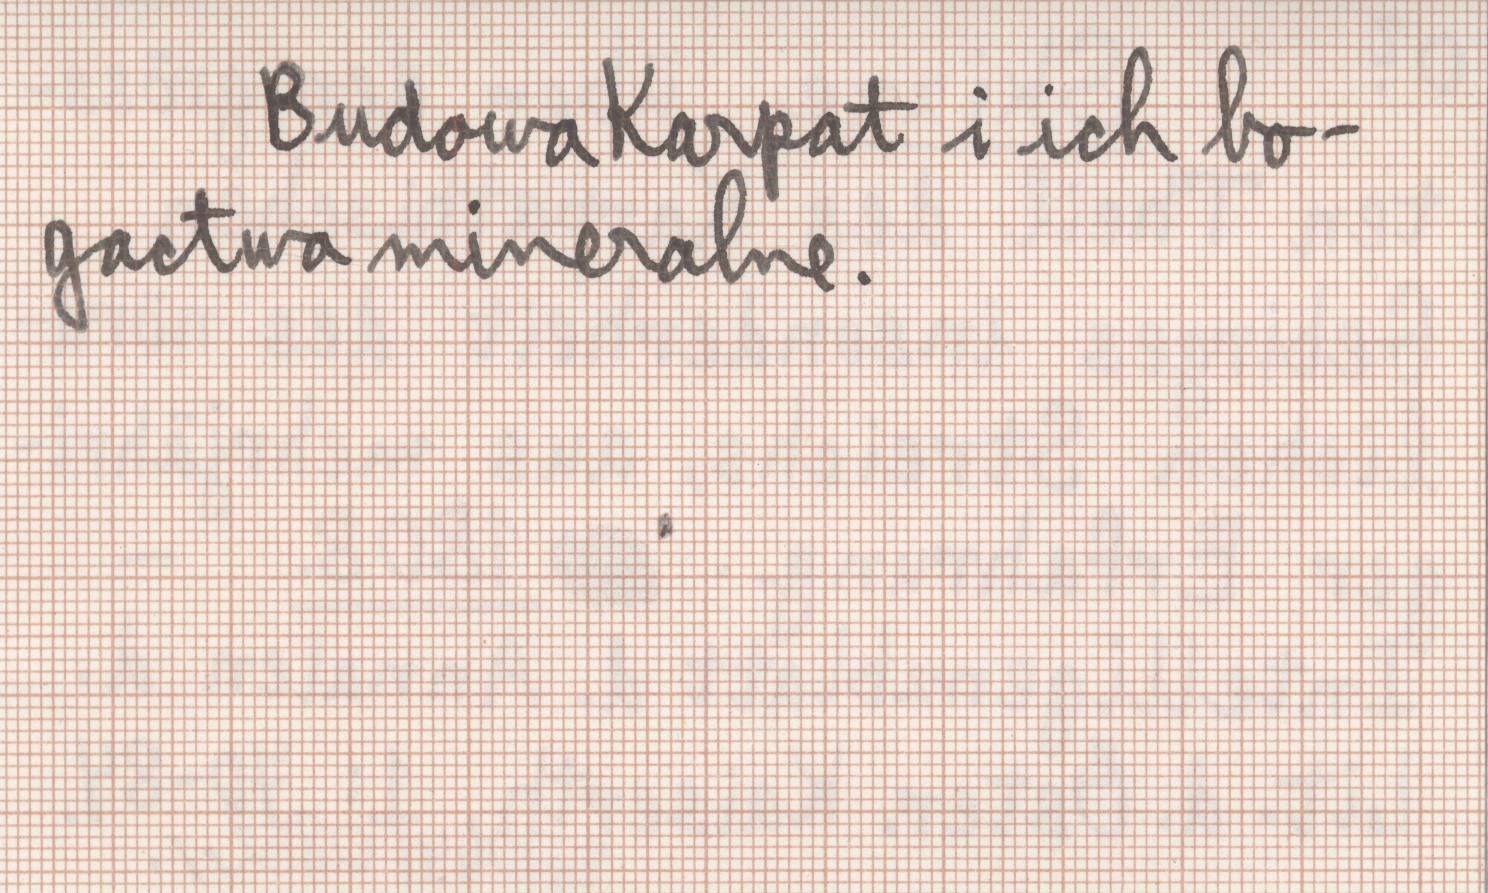 Budowa Karpat i ich bo-
gactwa mineralne.